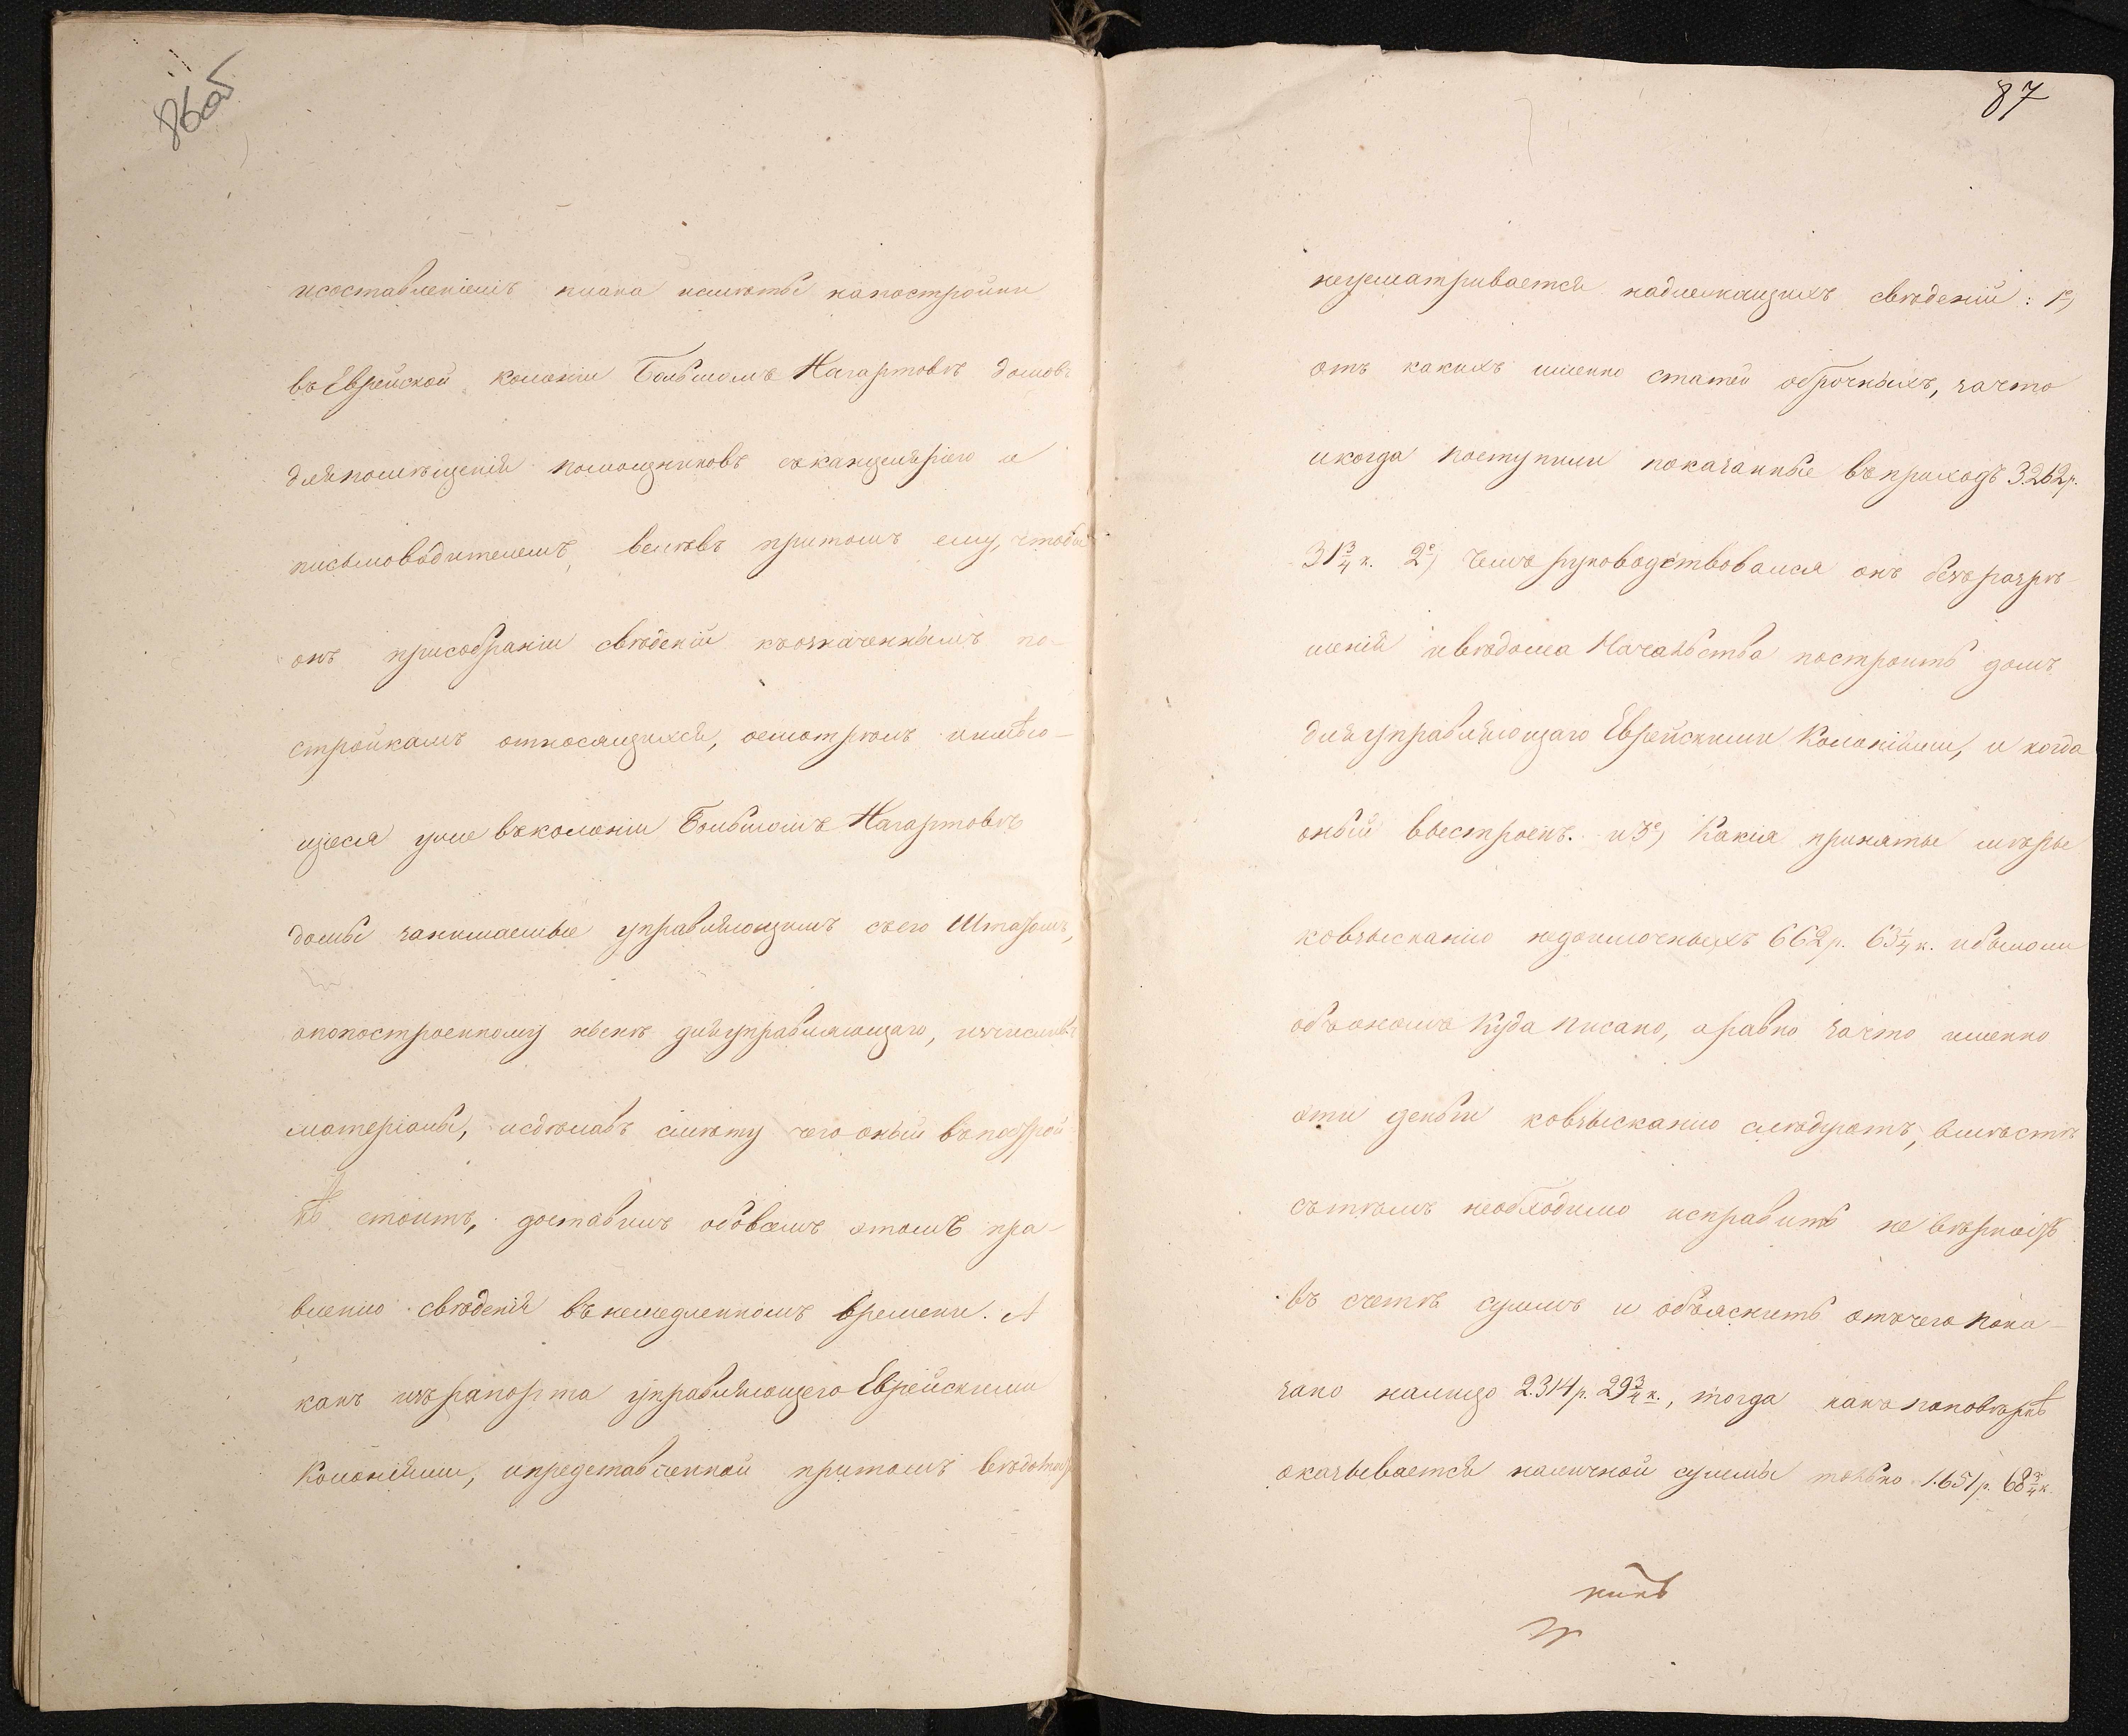 86об
исоставленіемъ плана исмѣты напостройки
въ Еврейской колоніи Большомъ Нагартовѣ домовъ
дляпомѣщенія помощниковъ съканцеляріею и
письмоводителемъ, велѣвъ притомъ ему, чтобы
онъ присобраніи свѣденій къозначеннымъ по-
стройкамъ относящихся, осмотрѣлъ имѣю-
щіеся уже въколоніи Большомъ Нагартовѣ
домы занимаемые управляющимъ съего Штатомъ,
апопостроенному нынѣ дляуправляющаго, изчисливъ
матеріалы, исдѣлавъ смѣту чего оный въпострой-
кѣ стоитъ, доставилъ обовсемъ этомъ пра-
вленію свѣденія въ немедленномъ времени. А
какъ изърапорта управляющего Еврейскими
Колоніями, ипредставленной притомъ вѣдомости
87
неусматривается надлежащихъ свѣденій: 1е,
отъ какихъ именно статей оброчныхъ, зачто
икогда поступили показанные въприходъ 3.262р.
31 3/4 к. 2е, Чемъ руководствовался онъ безъразрѣ-
шенія ивѣдома Начальства построить домъ
дляуправляющаго Еврейскими Колоніями, и когда
оный выстроенъ. и 3е, Какія принятые мѣры
ковзысканію недоимочныхъ 662р. 63 1/4 к. ибылоли
обоономъ Куда писано, аравно зачто именно
эти деньги ковзысканію слѣдуютъ, вмѣстѣ
сътѣмъ необходимо исправить не вѣрность
въ счетѣ суммъ и объяснить отъчего пока-
зано налицо 2.314р. 29 3/4 к., тогда какъ поповѣркѣ
оказывается наличной суммы только 1.651р. 68 3/4 к.